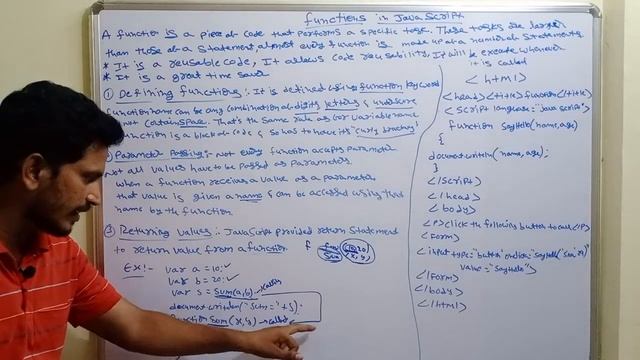 functions in JavaScript
A function is a piece of code that performs a specific task. These tasks are larger
than those of a statement, almost every function is made up of a number of statements
* It is a reusable code, It allows code reusability, It will be execute whenever
it is called
* It is a great time saver
① Defining functions:- It is defined using function keyword
function name can be any combination of digits, letters & underscore
not contain space. That's the same rule as for variable name
function is a block of code & so has to have its "curly
② Parameter Passing:- Not every function accepts parameter
Not all values have to be passed as parameters
when a function receives a value as a parameter
that value is given a name & can be accessed using that
name by the function
③ Returning values:- JavaScript provided return statement
to return value from a function
Ex:- var a = 10;
var b = 20;
var s = sum(a,b)
document.writeln("sum="+s);
function sum(x,y)
sum (x,y)
<html>
<head><title>function</title>
<script language="javascript">
function sayHello(name,age)
{
document.writeln(name,age);
}
</script>
</head>
<body>
<p>click the following button to call</p>
<form>
<input type="button" onclick="sayHello('Sai',21)"
value="sayHello">
</form>
</body>
</html>